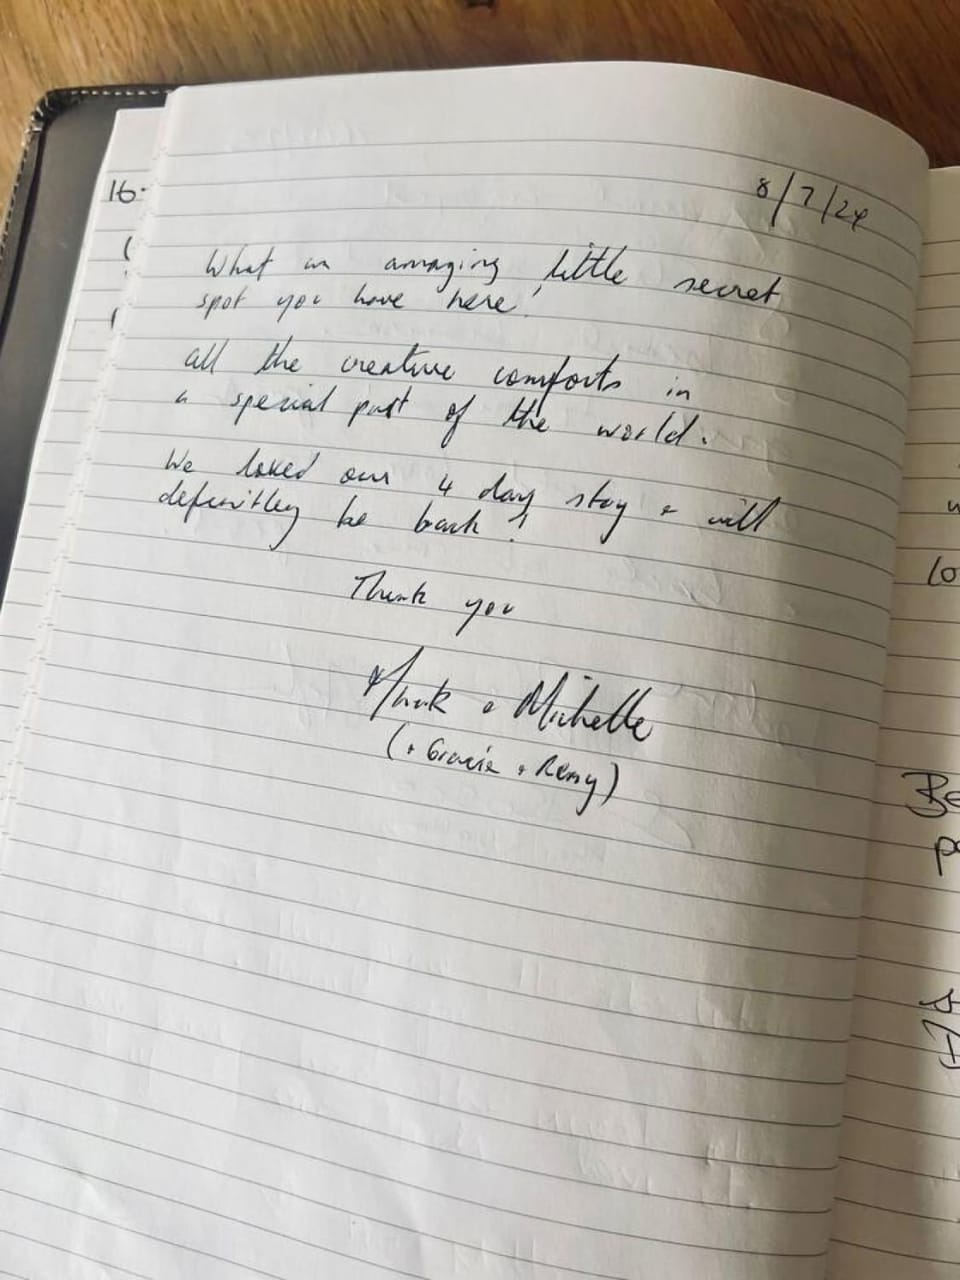 8/7/24
What an amazing little secret
spot you have here!
all the creature comforts in
a special part of the world.
We loved our 4 day stay + will
definitley be back!
Thank you
Mark + Michelle
(+ Gracie + Remy)
16.
lo
Be